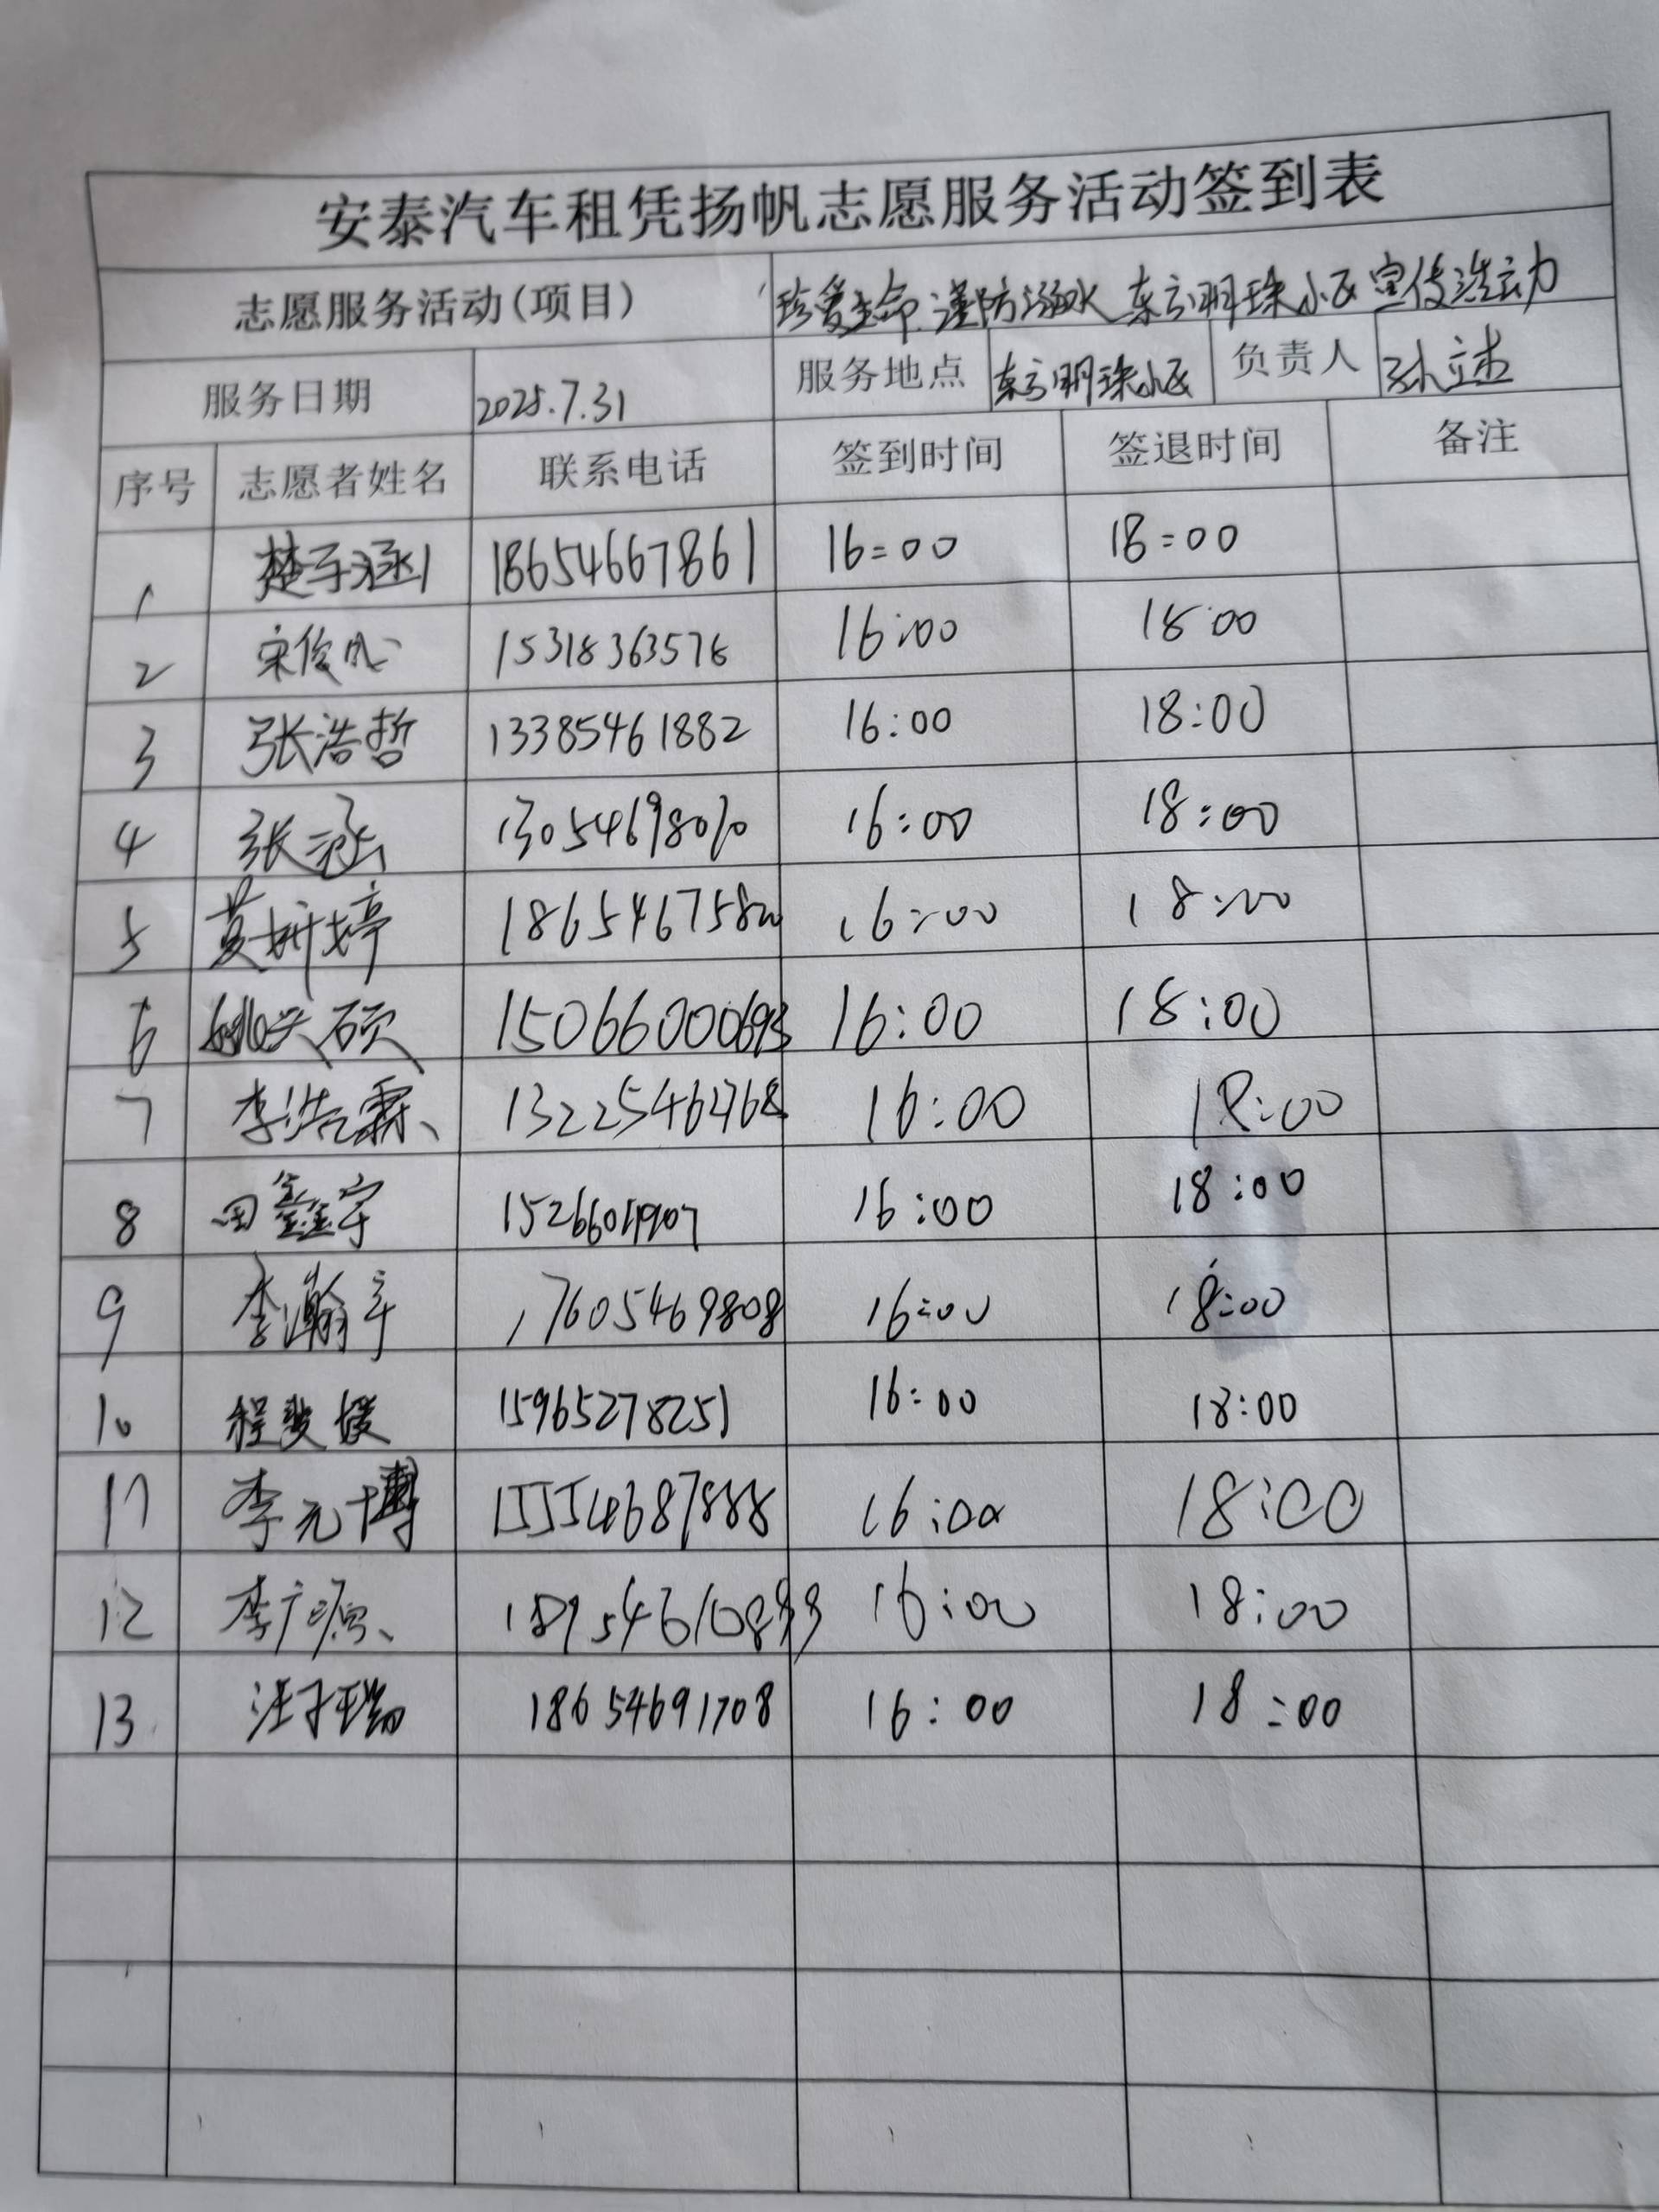 安泰汽车租凭扬帆志愿服务活动签到表
志愿服务活动(项目) 珍爱生命.谨防溺水 东方明珠小区宣传活动
服务日期 2025.7.31 服务地点 东方明珠小区 负责人 孙立杰
序号 志愿者姓名 联系电话 签到时间 签退时间 备注
1 楚子涵 18654667861 16:00 18:00
2 宋俊 15318363576 16:00 18:00
3 张浩哲 13385461882 16:00 18:00
4 张涵 16:00 18:00
5 黄妍婷 16:00 18:00
6 姚奕硕 15066000693 16:00 18:00
7 李浩霖 16:00 18:00
8 田鑫宇 16:00 18:00
9 李瀚宇 17605469808 16:00 18:00
10 程 媛 15965278251 16:00 18:00
11 李元博 15554687888 16:00 18:00
12 李广源 16:00 18:00
13 汪子瑞 18654691708 16:00 18:00